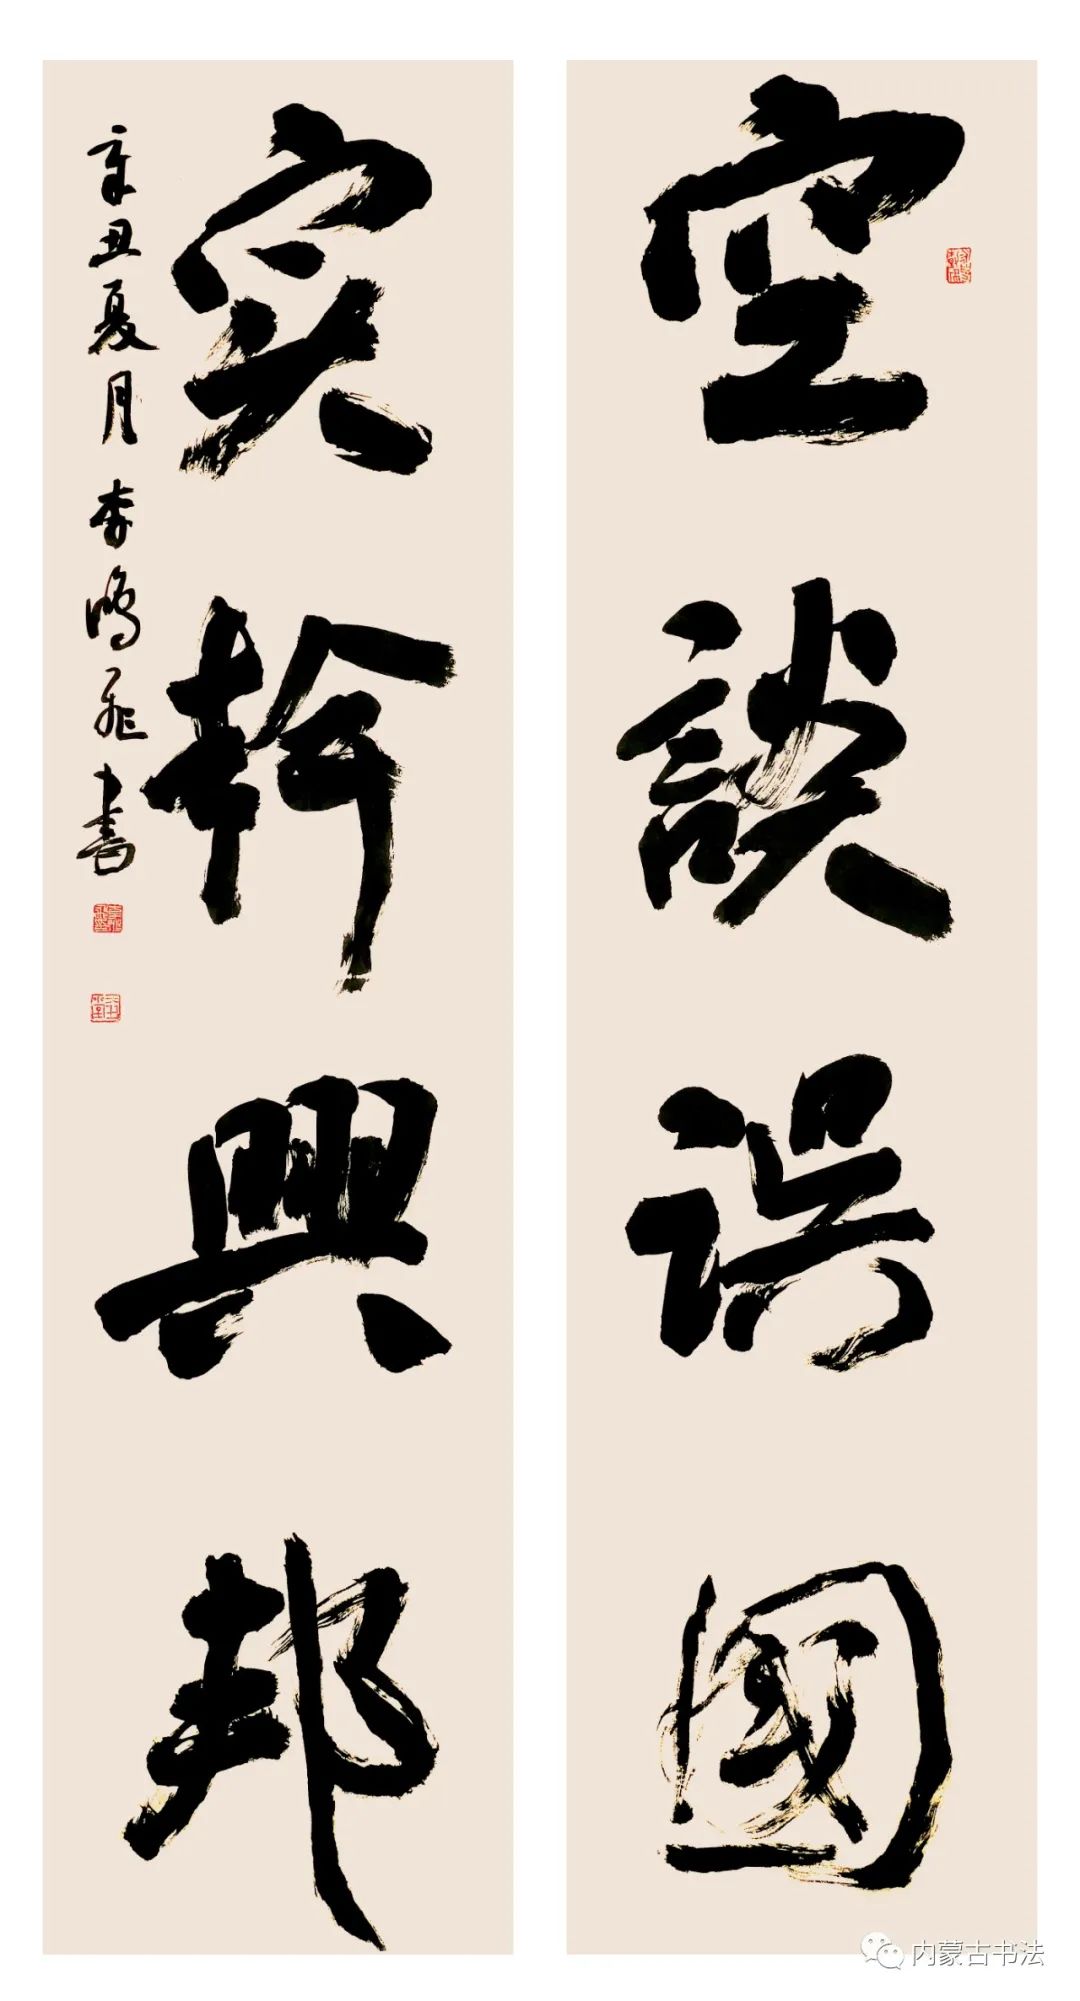 空談误國
实幹興邦
辛丑夏月李鸿飞書
内蒙古书法